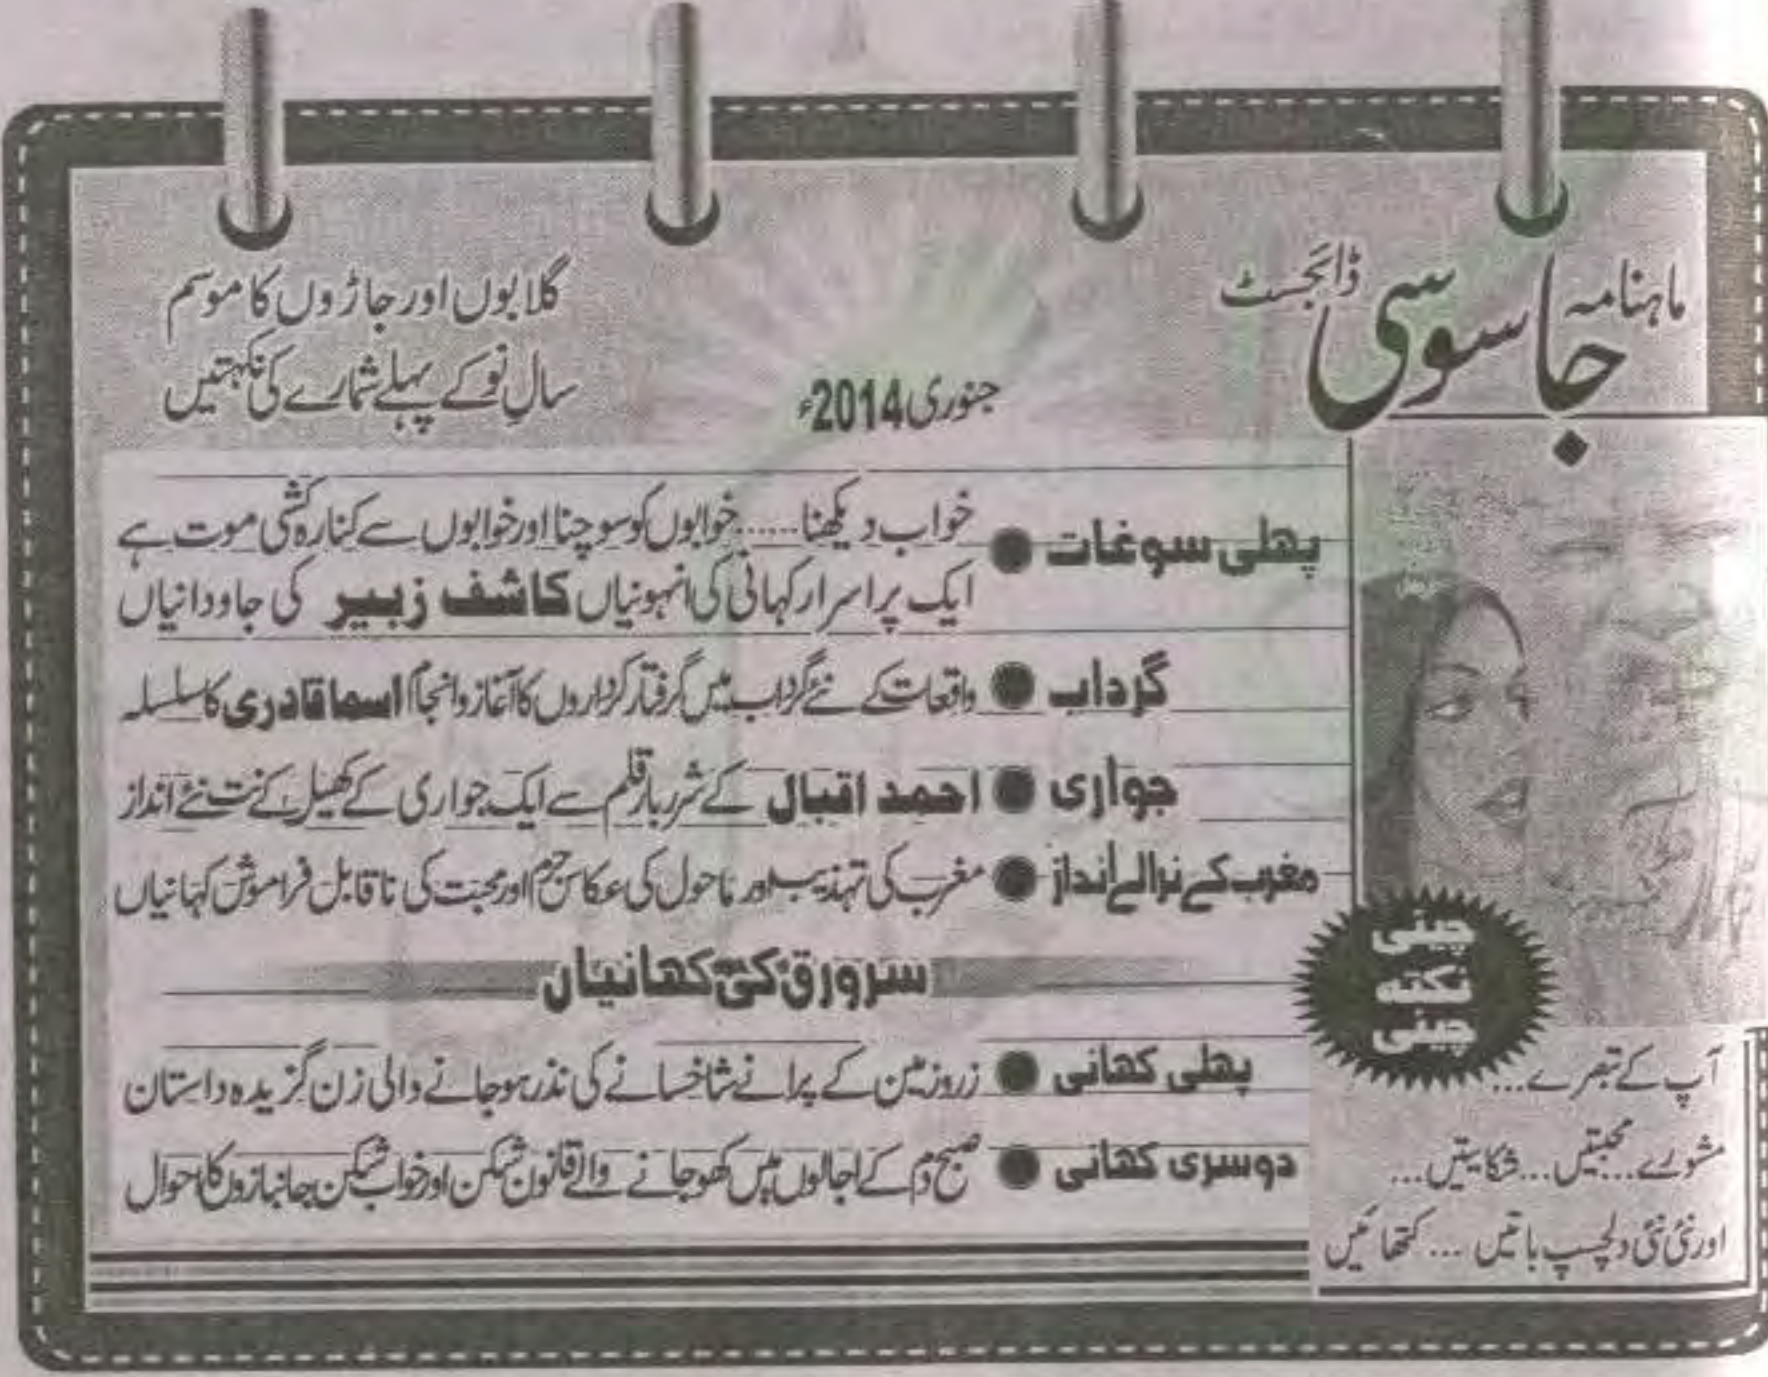 ماہنامہ جاسوسی ڈائجسٹ
جنوری 2014ء
گلابوں اور جاڑوں کا موسم
سالِ نَو کے پہلے شمارے کی نکہتیں
پہلی سوغات ● خواب دیکھنا...... خوابوں کو سوچنا اور خوابوں سے کنارہ کشی موت ہے
ایک پراسرار کہانی کی انہونیاں کاشف زبیر کی جاودانیاں
گرداب ● واقعات کے نئے گرداب میں گرفتار کرداروں کا آغاز و انجام اسما قادری کا سلسلہ
جواری ● احمد اقبال کے شرربار قلم سے ایک جواری کے کھیل کے نت نئے انداز
مغرب کے نرالے انداز ● مغرب کی تہذیب اور ماحول کی عکاس جرم اور محبت کی ناقابل فراموش کہانیاں
سرورق کی کہانیاں
پہلی کہانی ● زر و زمین کے پرانے شاخسانے کی نذر ہوجانے والی زن گزیدہ داستان
دوسری کہانی ● صبح دم کے اجالوں میں کھو جانے والے قانون شکن اور خواب شکن جانبازوں کا احوال
چینی
نکتہ
چینی
آپ کے تبصرے...
مشورے... محبتیں... شکایتیں...
اور نئی نئی دلچسپ باتیں ... کتھائیں